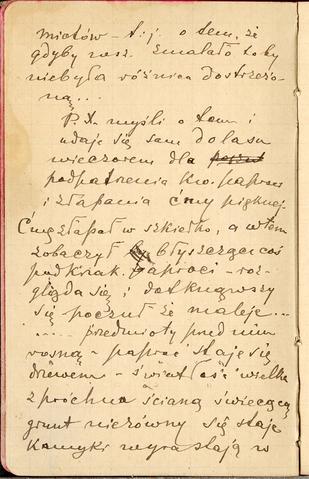 miotów - t.j. o tem, że
gdyby wsz. zmalało to by
nie była różnica dostrzeżo-
ną...
P. X. myśli o tem i
udaje się sam do lasu
wieczorem dla
podpatrzenia kw. paproci
i złapania ćmy pięknej.
Ćmę złapał w szkiełko, a wtem
zobaczył błyszczące coś
pod krzak. paproci - roz-
gląda się i dotknąwszy
się poczuł że maleje...
..... przedmioty pred nim
rosną - paproć staje się
drzewem - świat(ość) wielka
z próchna ścianą świecącą
grunt nierówny się staje
kamyki wyrastają w